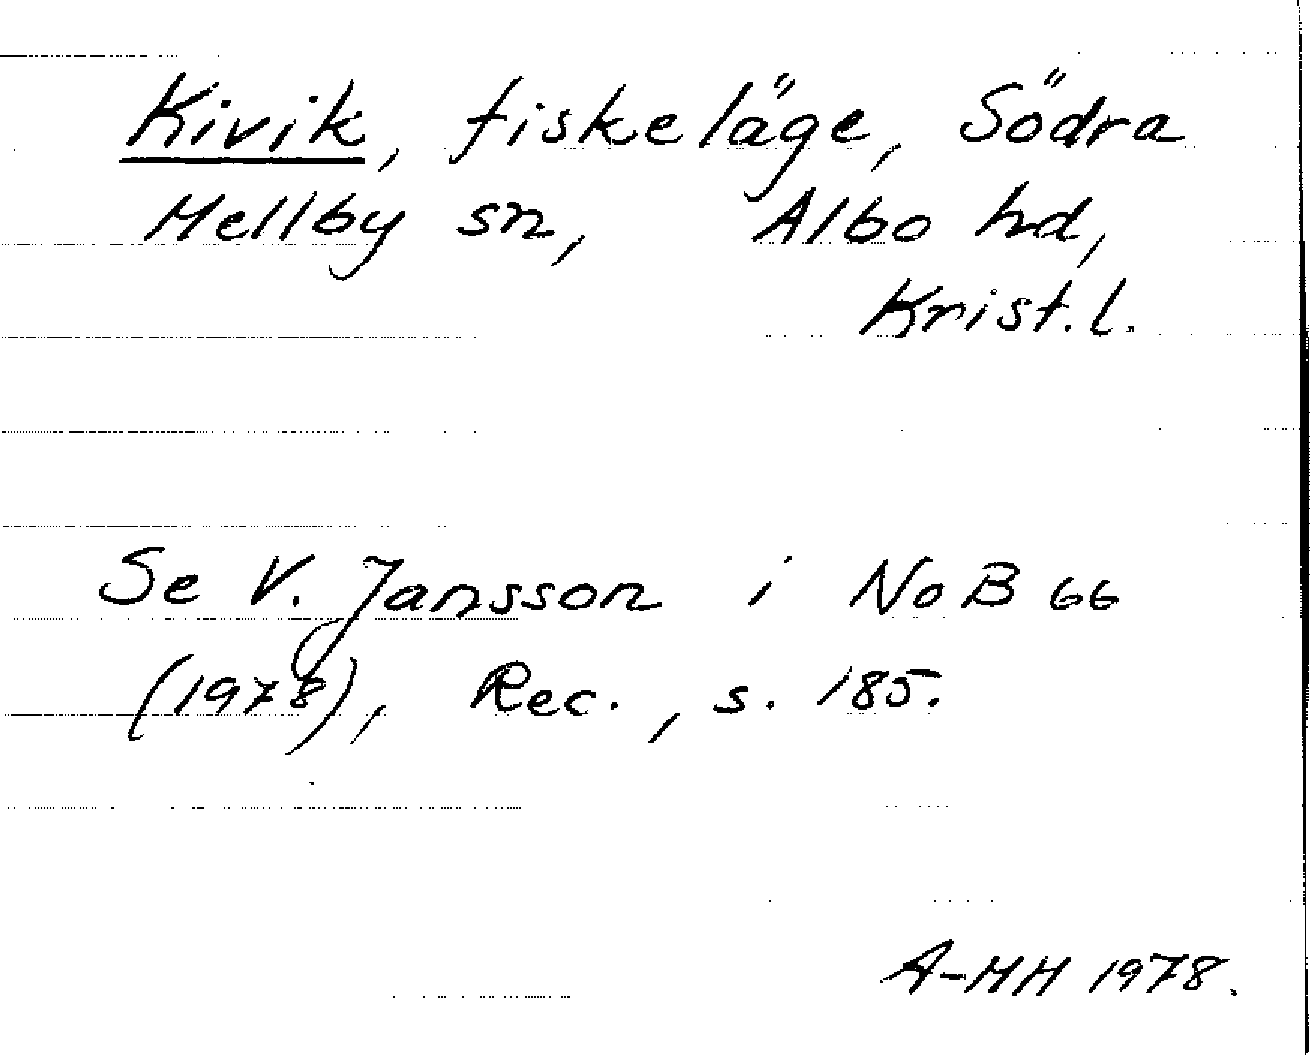 Kivik, fiskeläge, Södra
Mellby sn, Albo hd,
Krist. l.
Se V. Jansson i NoB 66
(1978), Rec., s. 185.
A-MH 1978.